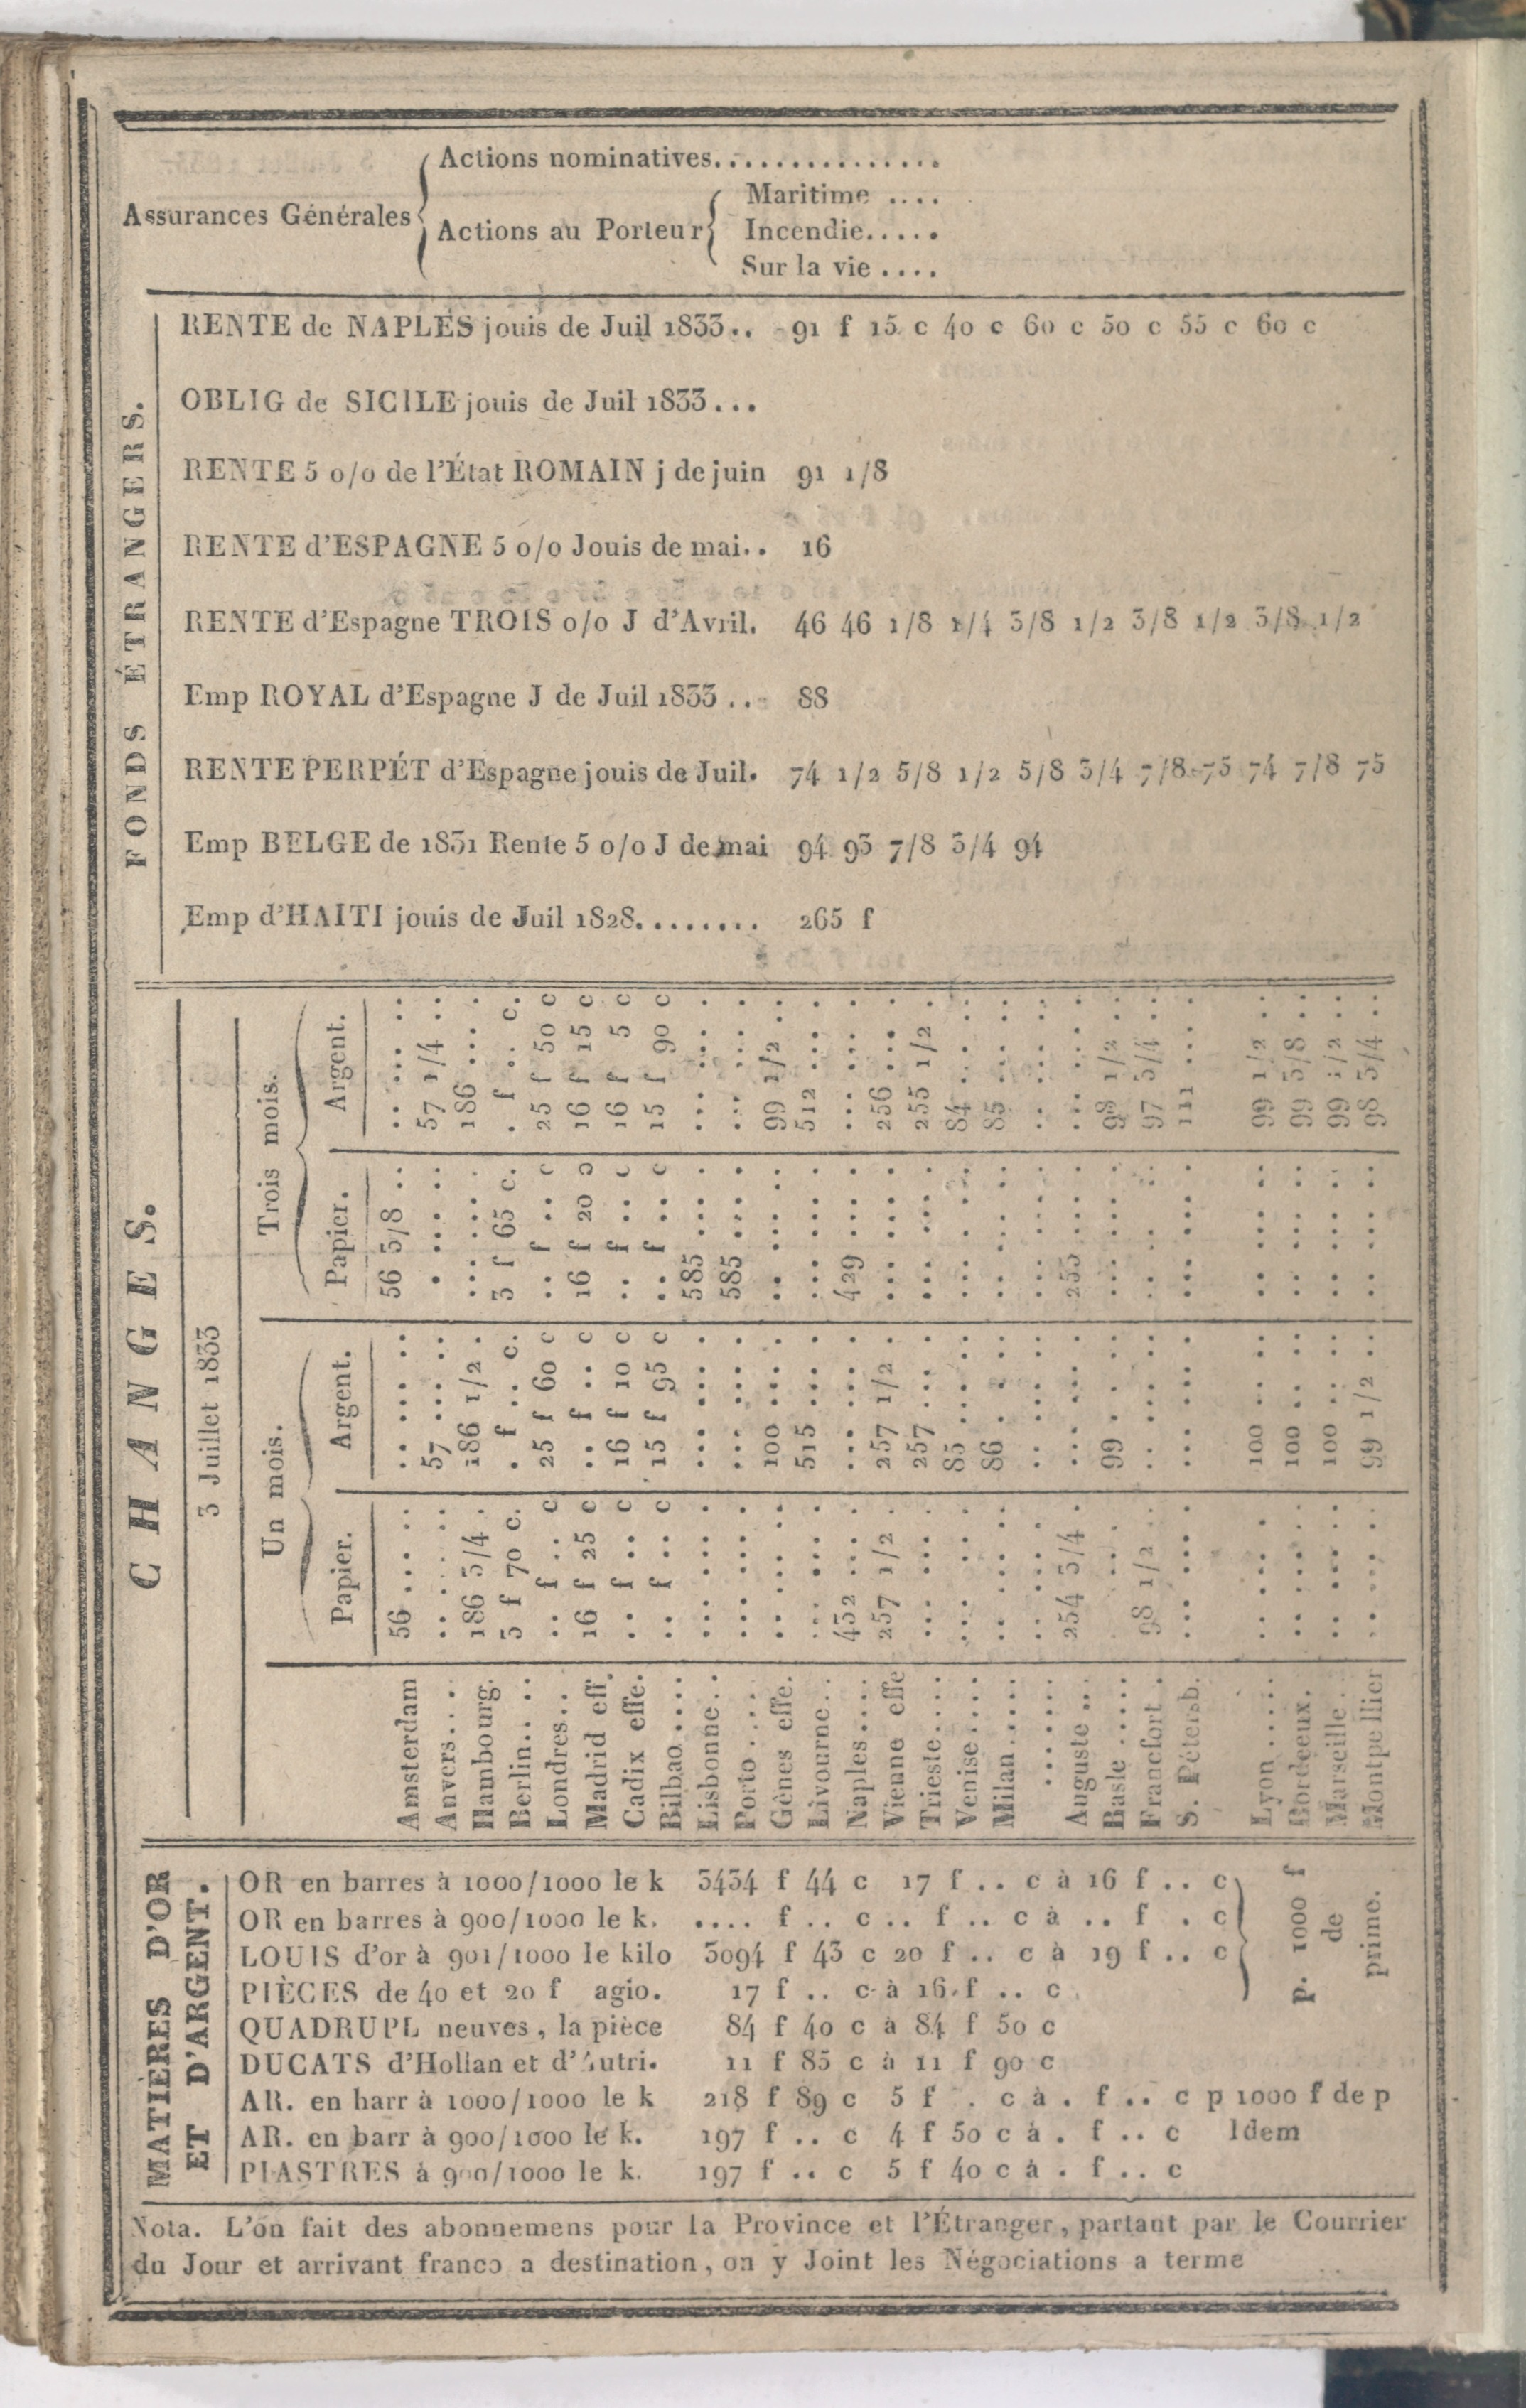 Assurances Générales
Actions nominatives...............
Actions au Porteur
Maritime ....
Incendie.....
Sur la vie ....
FONDS ÉTRANGERS.
RENTE de NAPLES jouis de Juil 1833.. 91 f 15 c 40 c 60 c 50 c 55 c 60 c
OBLIG de SICILE jouis de Juil 1833...
RENTE 5 o/o de l'État ROMAIN j de juin 91 1/8
RENTE d'ESPAGNE 5 o/o Jouis de mai.. 16
RENTE d'Espagne TROIS o/o J d'Avril. 46 46 1/8 1/4 3/8 1/2 3/8 1/2 3/8 1/2
Emp ROYAL d'Espagne J de Juil 1833 .. 88
RENTE PERPÉT d'Espagne jouis de Juil. 74 1/2 5/8 1/2 5/8 3/4 7/8 75 74 7/8 75
Emp BELGE de 1831 Rente 5 o/o J de mai 94 93 7/8 3/4 94
Emp d'HAITI jouis de Juil 1828........ 265 f
CHANGES.
3 Juillet 1833
Un mois. Trois mois.
Papier. Argent. Papier. Argent.
Amsterdam 56 ... .. .. ... .. 56 3/8 .. .. ... ..
Anvers... .. ... .. 57 ... .. . ... .. 57 1/4 ..
Hambourg. 186 3/4 . 186 1/2 . ... ... . 186 ... .
Berlin.. .. 3 f 70 c. . f .. c. 3 f 65 c. . f .. c.
Londres.. .. f .. c 25 f 60 c .. f .. c 25 f 50 c
Madrid eff. 16 f 25 c .. f .. c 16 f 20 c 16 f 15 c
Cadix effe. .. f .. c 16 f 10 c .. f .. c 16 f 5 c
Bilbao.... .. f .. c 15 f 95 c .. f .. c 15 f 90 c
Lisbonne.. ... ... . ... ... . 585 ... . ... ... .
Porto .... ... ... . ... ... . 585 ... . ... ... .
Gènes effe. .. ... .. 100 ... .. .. ... .. 99 1/2 ..
Livourne.. ... ... . 515 ... . ... ... . 512 ... .
Naples.... 432 ... . ... ... . 429 ... . ... ... .
Vienne effe 257 1/2 . 257 1/2 . ... ... . 256 ... .
Trieste.... ... ... . 257 ... . ... ... . 255 1/2 .
Venise.... ... .. .. 85 ... .. .. . .. 84 .. ..
Milan..... .. ... .. 86 . .. .. . .. 85 .. ..
.......
Auguste ... 254 3/4 . ... ... . 253 ... . ... ... .
Basle ..... .. .. 99 . .. .. . .. 98 1/2 ..
Francfort . 98 1/2 .. .. . .. . . .. 97 3/4 ..
S. Pétersb. ... ... . ... ... . ... ... . 111 ... .
Lyon ..... .. ... . 100 .. .. .. ... .. 99 1/2 ..
Bordeeux. .. ... .. 100 .. .. .. ... .. 99 5/8 ..
Marseille.. .. ... .. 100 .. .. .. ... .. 99 1/2 ..
Montpellier .. ... .. 99 1/2 .. .. ... .. 98 3/4 ..
MATIÈRES D'OR
ET D'ARGENT.
OR en barres à 1000/1000 le k 3434 f 44 c 17 f .. c à 16 f .. c
OR en barres à 900/1000 le k. .... f .. c .. f .. c à .. f . c
LOUIS d'or à 901/1000 le kilo 3094 f 43 c 20 f .. c à 19 f .. c
PIÈCES de 40 et 20 f agio. 17 f .. c à 16 f .. c
p. 1000 f
de
prime.
QUADRUPL neuves, la pièce 84 f 40 c à 84 f 50 c
DUCATS d'Hollan et d'Autri. 11 f 85 c à 11 f 90 c
AR. en barr à 1000/1000 le k 218 f 89 c 5 f . c à . f .. c p 1000 f de p
AR. en barr à 900/1000 le k. 197 f .. c 4 f 50 c à . f .. c Idem
PIASTRES à 900/1000 le k. 197 f .. c 5 f 40 c à . f .. c
Nota. L'on fait des abonnemens pour la Province et l'Étranger, partant par le Courrier
du Jour et arrivant franco a destination, on y Joint les Négociations a terme